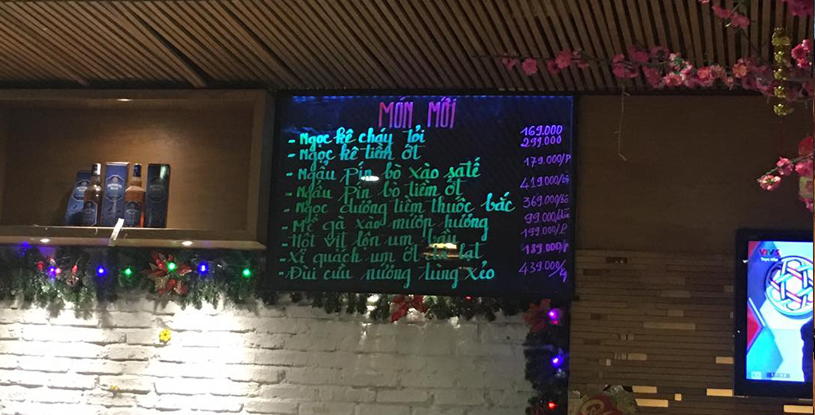 MÓN MỚI
- Ngọc kê cháy tỏi 169.000
- Ngọc kê tiềm ớt 299.000
- Ngẩu pín bò xào satế 179.000/P
- Ngẩu pín bò tiềm ớt 419.000
- Ngọc dương tiềm thuốc bắc 369.000
- Mề gà xào mướp hương 99.000
- Hột vịt lộn um bầu 199.000
- Xí quách um ớt 189.000
- Đùi cừu nướng tùng xẻo 439.000